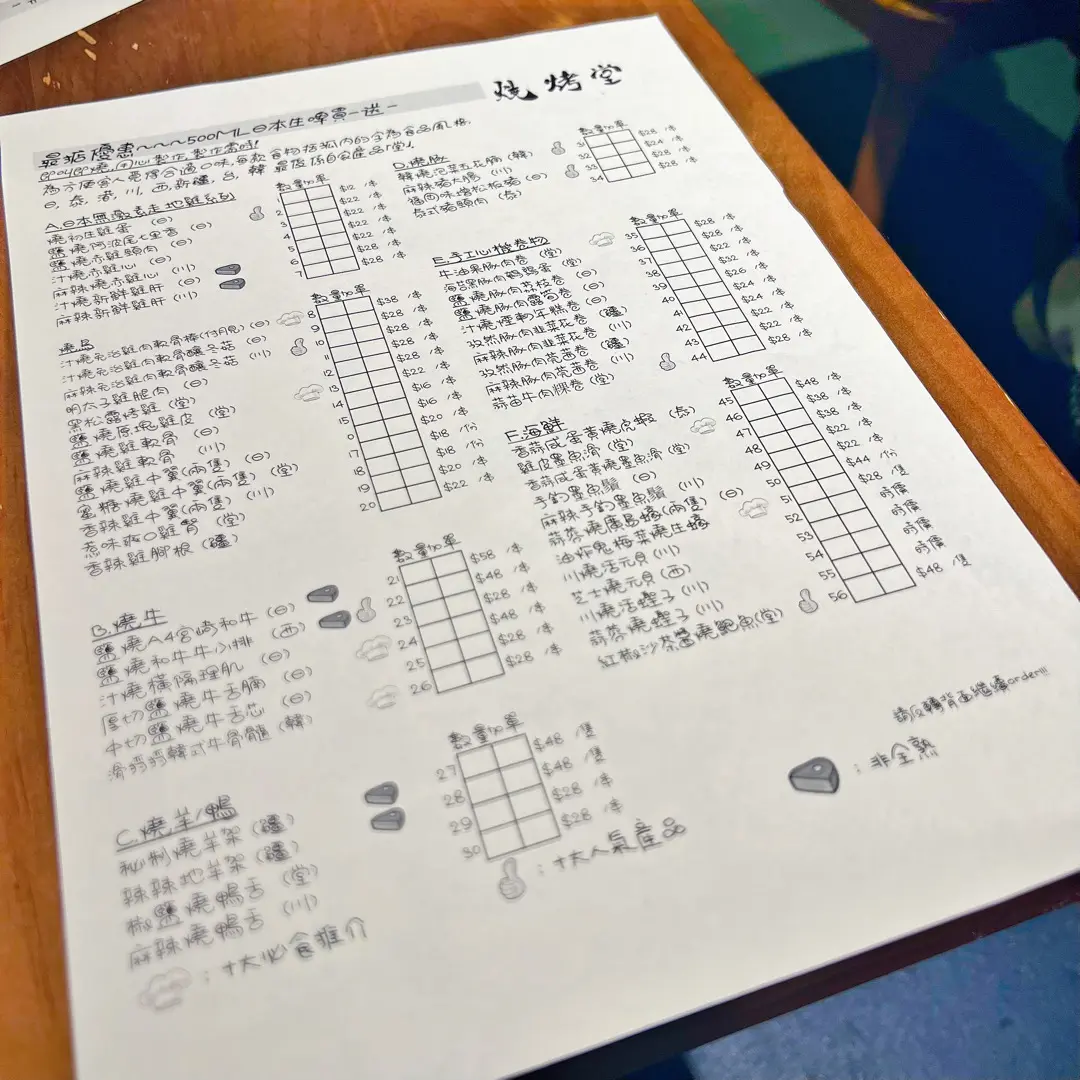 燒烤堂
最近優惠~~~500ML日本生啤買一送一
為方便客人覓得合適口味,每款食物括弧內的字為食品風格,
日,泰,港,川,西,新疆,台,韓 最後係自家產品「堂」
A.日本無激素走地雞系列
數量 加單
燒初生雞蛋 (日)
1 $12 /串
鹽燒阿波尾七里香 (日)
2 $22 /串
鹽燒赤雞頸肉 (日)
3 $22 /串
汁燒赤雞心 (日)
4 $22 /串
麻辣燒赤雞心 (川)
5 $22 /串
汁燒新鮮雞肝 (日)
6 $28 /串
麻辣新鮮雞肝 (川)
7 $28 /串
燒鳥
數量 加單
汁燒免治雞肉軟骨棒(付月見) (日)
8 $38 /串
汁燒免治雞肉軟骨釀冬菇 (日)
9 $28 /串
麻辣免治雞肉軟骨釀冬菇 (川)
10 $28 /串
明太子雞腿肉 (日)
11 $28 /串
黑松露烤雞 (堂)
12 $28 /串
鹽燒原塊雞皮 (堂)
13 $22 /串
鹽燒雞軟骨 (日)
14 $16 /串
麻辣雞軟骨 (川)
15 $16 /串
鹽燒雞中翼(兩隻) (日)
$20 /串
蜜糖燒雞中翼(兩隻) (堂)
17 $18 /份
香辣雞中翼(兩隻) (川)
18 $18 /串
惹味爽口雞腎 (堂)
19 $20 /串
香辣雞腳根 (疆)
20 $22 /串
B.燒牛
數量 加單
鹽燒A4宮崎和牛 (日)
21 $58 /串
鹽燒和牛牛小排 (西)
22 $48 /串
汁燒橫隔理肌 (日)
23 $28 /串
厚切鹽燒牛舌腩 (日)
24 $48 /串
中切鹽燒牛舌芯 (日)
25 $28 /串
滑捋捋韓式牛骨髓 (韓)
26 $28 /串
C.燒羊/鴨
數量 加單
秘制燒羊架 (疆)
27 $48 /隻
辣辣地羊架 (疆)
28 $48 /隻
椒鹽燒鴨舌 (堂)
29 $28 /串
麻辣燒鴨舌 (川)
30 $28 /串
:十大必食推介
:十大人氣產品
D.燒豚
數量 加單
韓燒泡菜五花腩 (韓)
31 $28 /串
麻辣豬大腸 (川)
32 $24 /串
福岡味增松板豬 (日)
33 $28 /串
泰式豬頸肉 (泰)
34 $28 /串
E.手工心機卷物
數量 加單
牛油果豚肉卷 (堂)
35 $28 /串
海苔黑豚肉鵪鶉蛋 (堂)
36 $28 /串
鹽燒豚肉荔枝卷 (日)
37 $28 /串
鹽燒豚肉露筍卷 (日)
38 $32 /串
汁燒煙韌年糕卷 (日)
39 $26 /串
孜然豚肉韭菜花卷 (疆)
40 $24 /串
麻辣豚肉韭菜花卷 (川)
41 $24 /串
孜然豚肉芫茜卷 (疆)
42 $22 /串
麻辣豚肉芫茜卷 (川)
43 $22 /串
蒜苗牛肉粿卷 (堂)
44 $28 /串
F.海鮮
數量 加單
香蒜咸蛋黃燒虎蝦 (泰)
45 $48 /串
雞皮墨魚滑 (堂)
46 $28 /串
香蒜咸蛋黃燒墨魚滑 (堂)
47 $38 /串
手釣墨魚鬚 (日)
48 $22 /串
麻辣手釣墨魚鬚 (川)
49 $22 /串
蒜蓉燒廣島蠔(兩隻) (日)
50 $44 /份
油炸鬼梅菜燒生蠔
51 $28 /隻
川燒活元貝 (川)
52 時價
芝士燒元貝 (西)
53 時價
川燒活蟶子 (川)
54 時價
蒜蓉燒蟶子 (川)
55 時價
紅椒沙茶醬燒鮑魚(堂)
56 $48 /隻
請反轉背面繼續order!!!
:非全熟